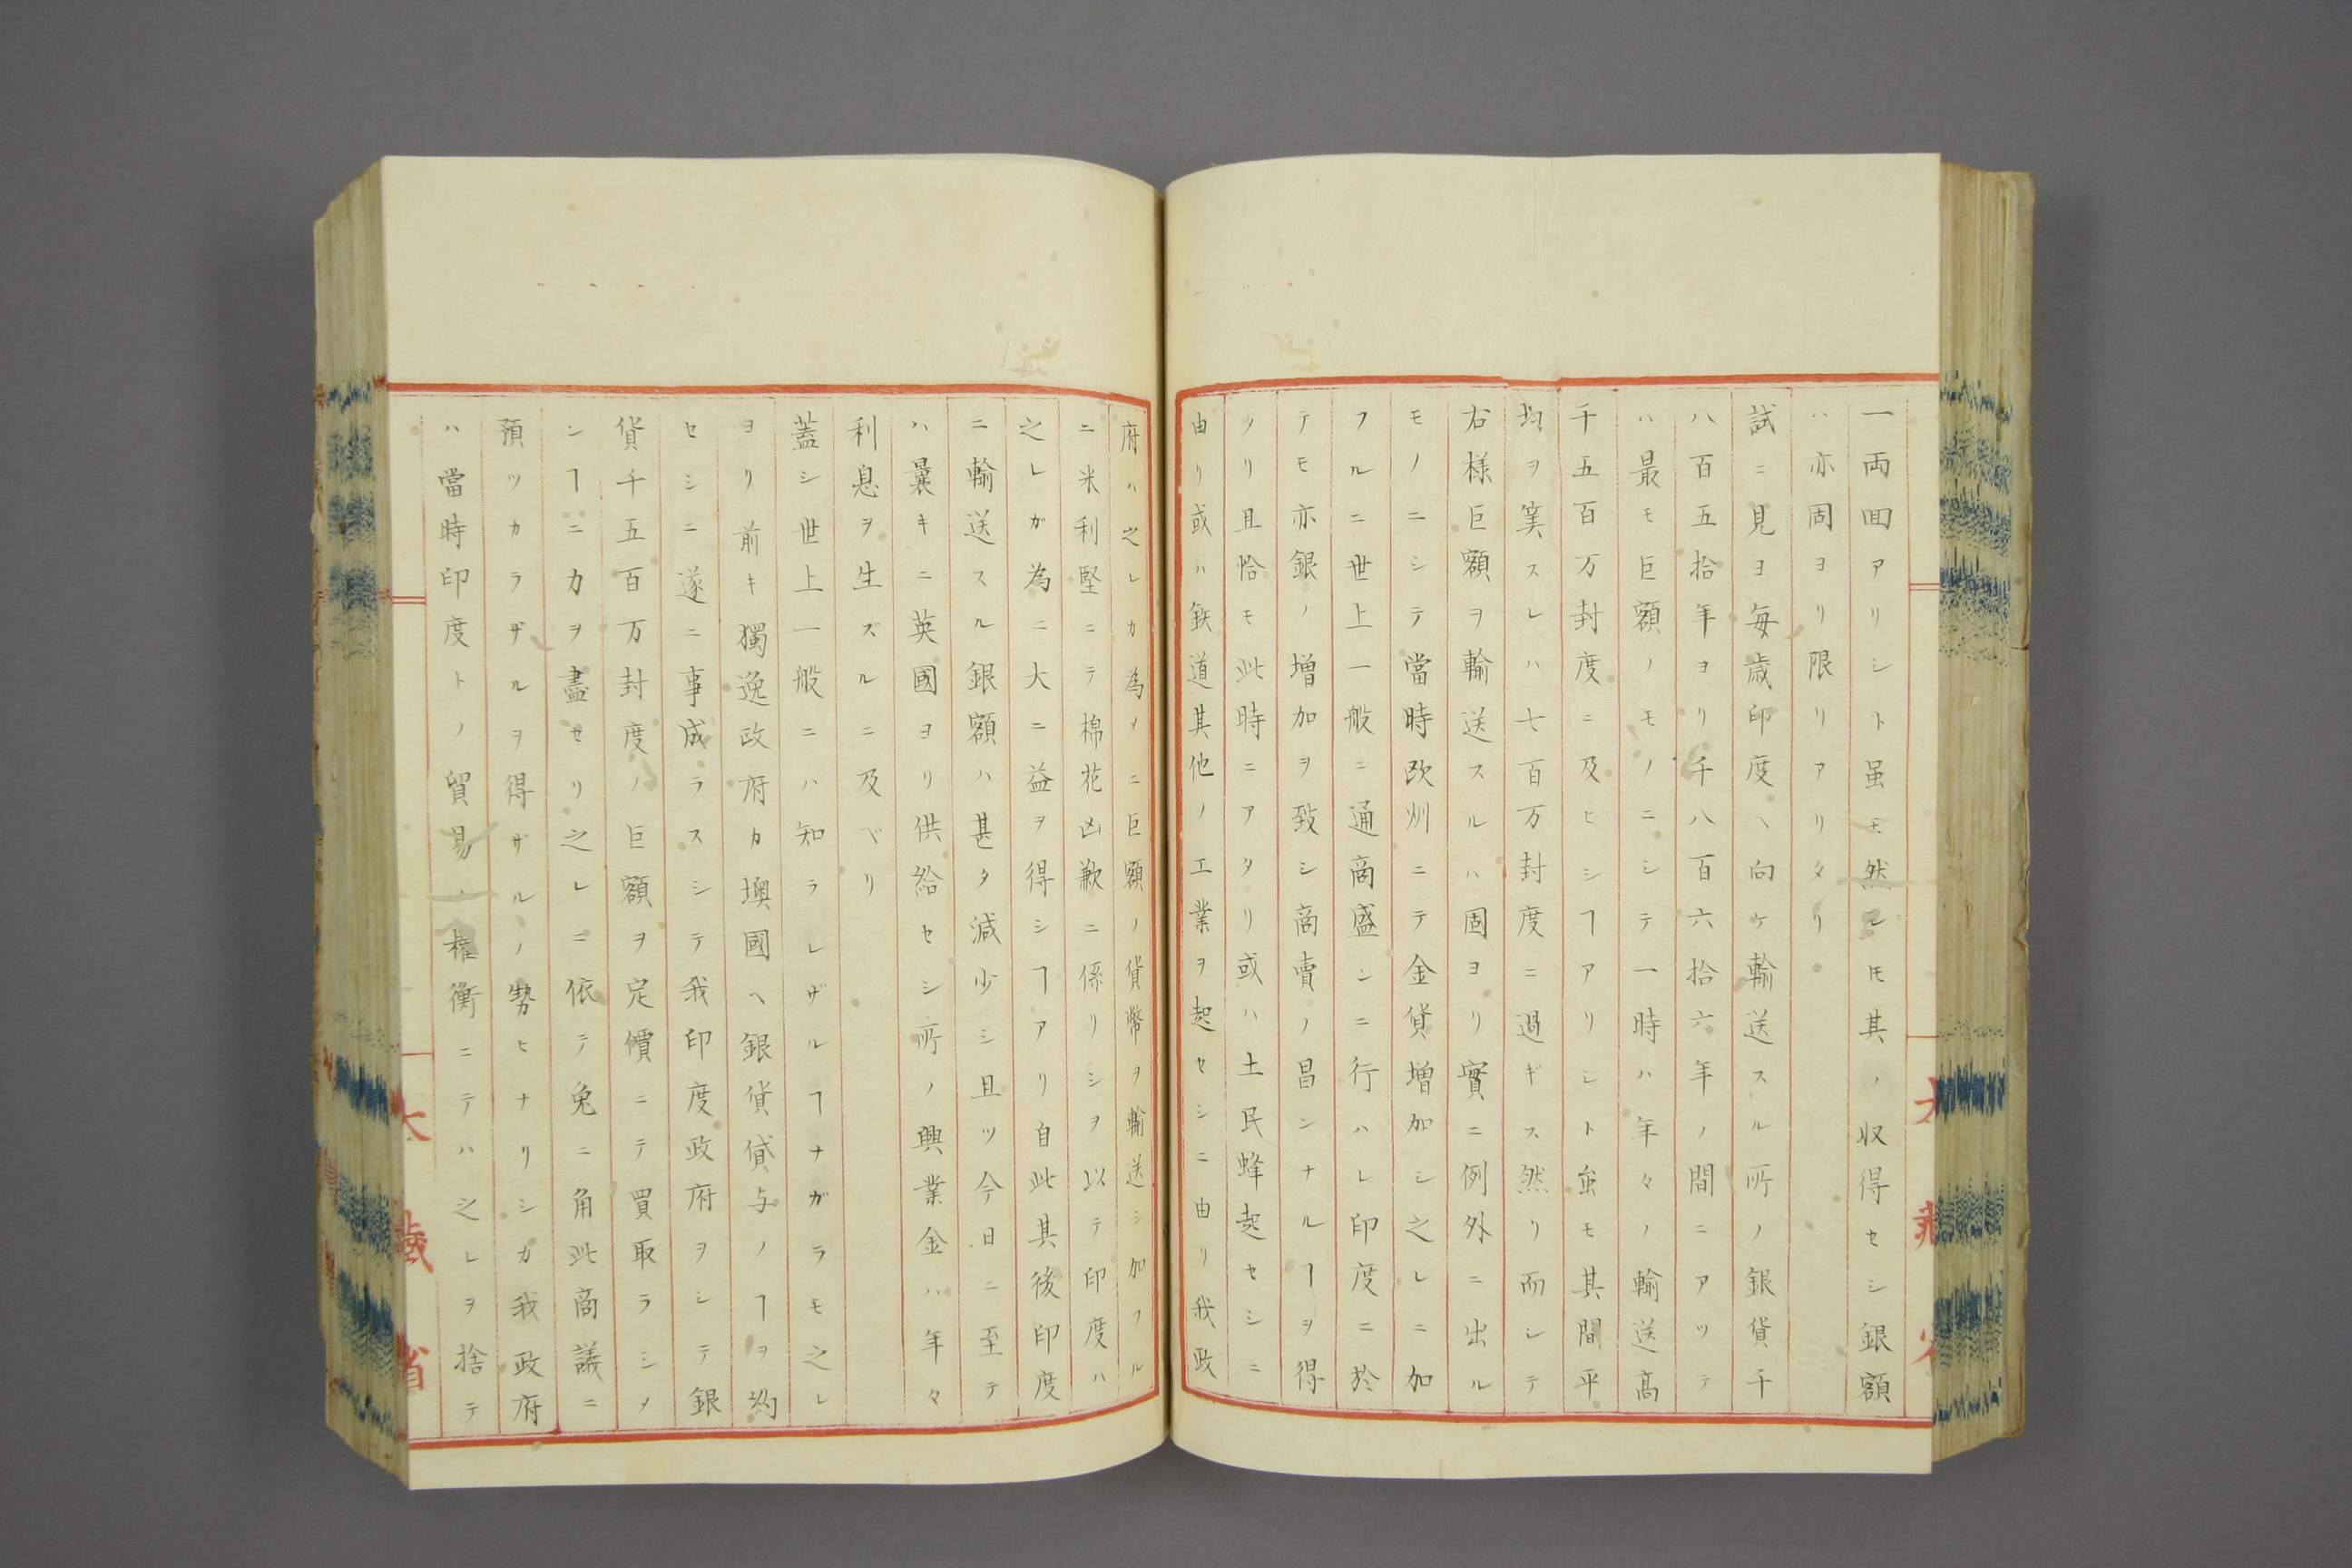 一両回アリシト虽モ然レ𪜈其ノ収得セシ銀額
ハ亦固ヨリ限リアリタリ
試ニ見ヨ毎歳印度ヘ向ケ輸送スル所ノ銀貨千
八百五拾年ヨリ千八百六拾六年ノ間ニアツテ
ハ最モ巨額ノモノニシテ一時ハ年々ノ輸送高
千五百万封度ニ及ヒシヿアリシト虽モ其間平
均ヲ筭スレハ七百万封度ニ過ギス然リ而シテ
右様巨額ヲ輸送スルハ固ヨリ實ニ例外ニ出ル
モノニシテ當時欧州ニテ金貨増加シ之レニ加
フルニ世上一般ニ通商盛ンニ行ハレ印度ニ於
テモ亦銀ノ増加ヲ致シ商賣ノ昌ンナルヿヲ得
タリ且恰モ此時ニアタリ或ハ土民蜂起セシニ
由リ或ハ鉄道其他ノ工業ヲ起セシニ由リ我政
府ハ之レカ為メニ巨額ノ貨幣ヲ輸送シ加フル
ニ米利堅ニテ棉花凶歉ニ係リシヲ以テ印度ハ
之レガ為ニ大ニ益ヲ得シヿアリ自此其後印度
ニ輸送スル銀額ハ甚タ減少シ且ツ今日ニ至テ
ハ曩キニ英國ヨリ供給セシ所ノ興業金ハ年々
利息ヲ生ズルニ及ベリ
蓋シ世上一般ニハ知ラレザルヿナガラモ之レ
ヨリ前キ獨逸政府カ墺國ヘ銀貨貸与ノヿヲ約
セシニ遂ニ事成ラスシテ我印度政府ヲシテ銀
貨千五百万封度ノ巨額ヲ定價ニテ買取ラシメ
ンヿニカヲ盡セリ之レニ依テ兔ニ角此商議ニ
預ツカラザルヲ得ザルノ勢ヒナリシカ我政府
ハ當時印度トノ貿易ノ權衡ニテハ之レヲ捨テ
大藏省
大藏省